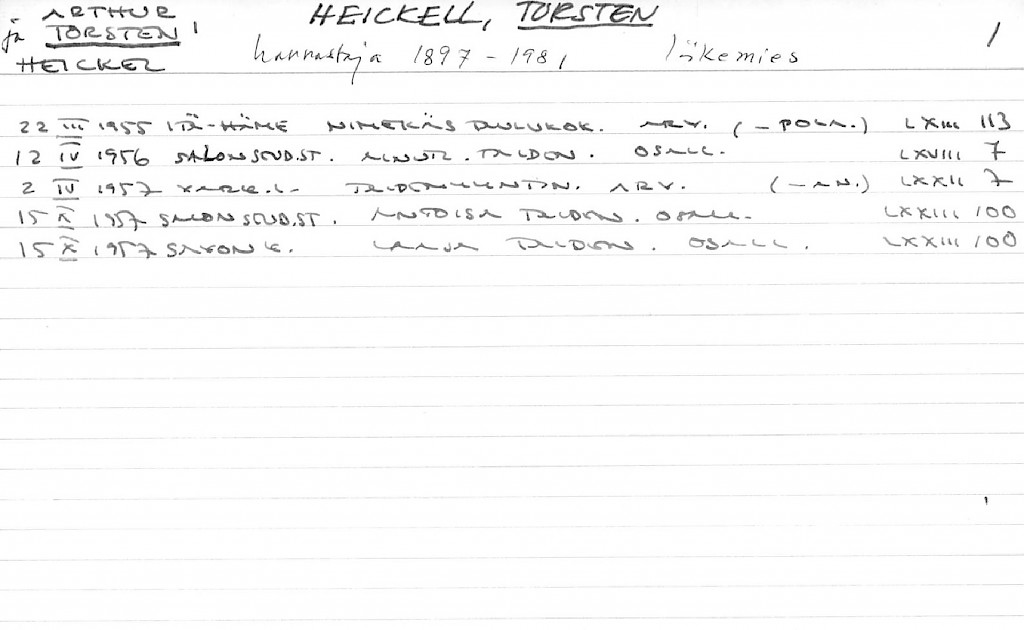 ARTHUR
ja TORSTEN
HEICKEL
HEICKELL, TORSTEN 1
harrastaja 1897 - 1981 lääkemies
22 III 1955 ITÄ-HÄME NIMEKÄS TAULUKOK. ARV. (- POLA.) LXIII 113
12 IV 1956 SALON SEUD.ST. TAIDEN. OSALL. LXVIII 7
2 IV 1957 ARV. LXXII 7
15 X 1957 SALON SEUD.ST. ANTOISA TAIDEN. OSALL. LXXIII 100
15 X 1957 LAAJA TAIDEN. OSALL. LXXIII 100